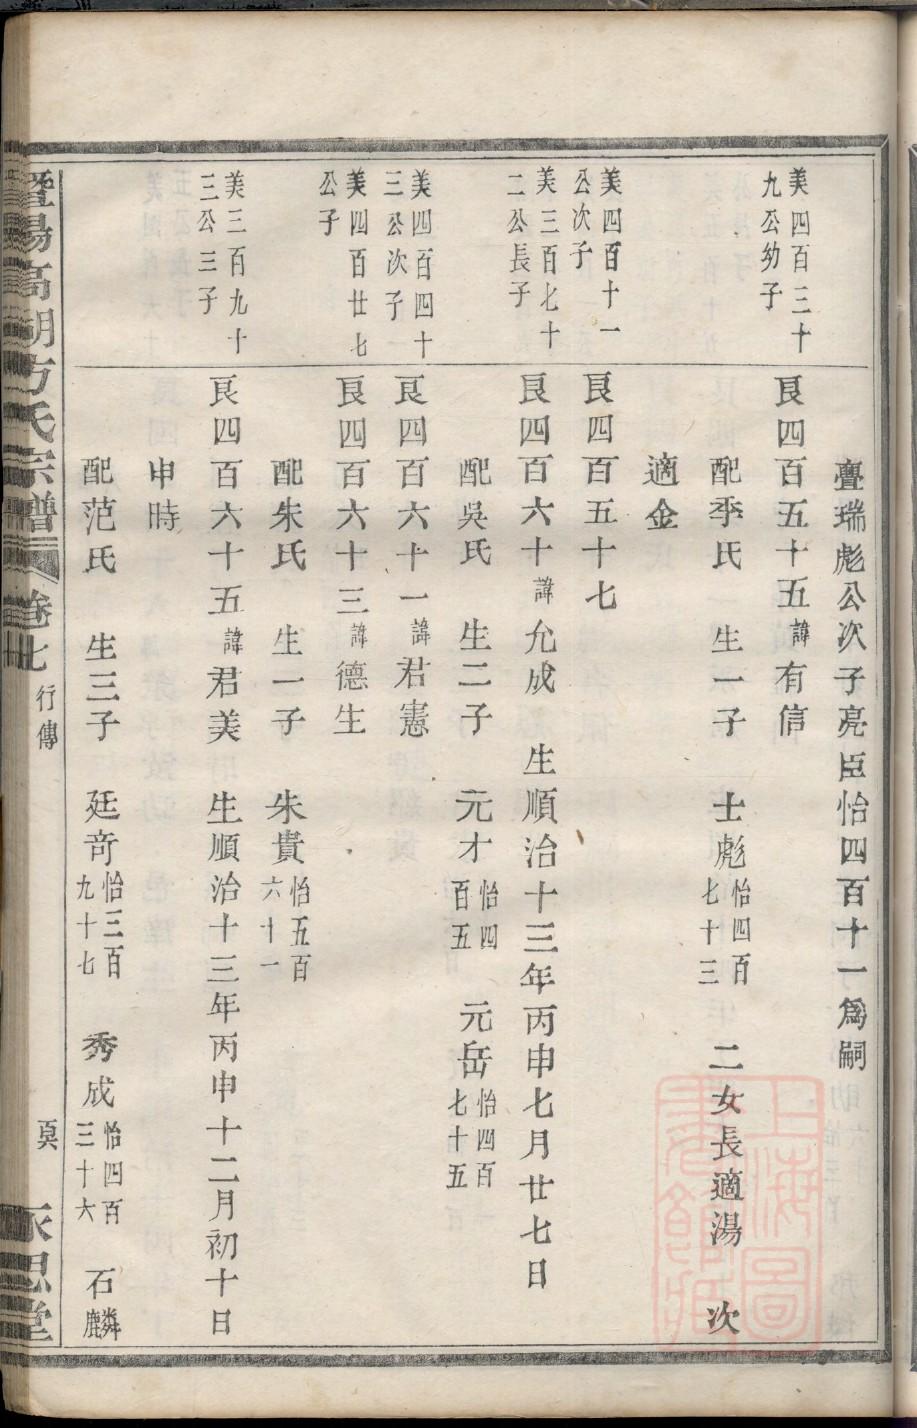 亹瑞彪公次子亮臣怡四百十一爲嗣
美四百三十
九公幼子
艮四百五十五諱有信
配季氏 生一子 士彪怡四百七十三 二女長適湯 次
適金
美四百十一
公次子
艮四百五十七
美三百七十
二公長子
艮四百六十諱允成 生順治十三年丙申七月廿七日
配吳氏 生二子 元才怡四百五 元岳怡四百七十五
美四百四十
三公次子
艮四百六十一諱君憲
美四百廿七
公子
艮四百六十三諱德生
配朱氏 生一子 朱貴怡五百六十一
美三百九十
三公三子
艮四百六十五諱君美 生順治十三年丙申十二月初十日
申時
配范氏 生三子 廷奇怡三百九十七 秀成怡四百三十六 石麟
暨陽高湖方氏宗譜 卷七 行傳 頁 永思堂
上海圖書館藏